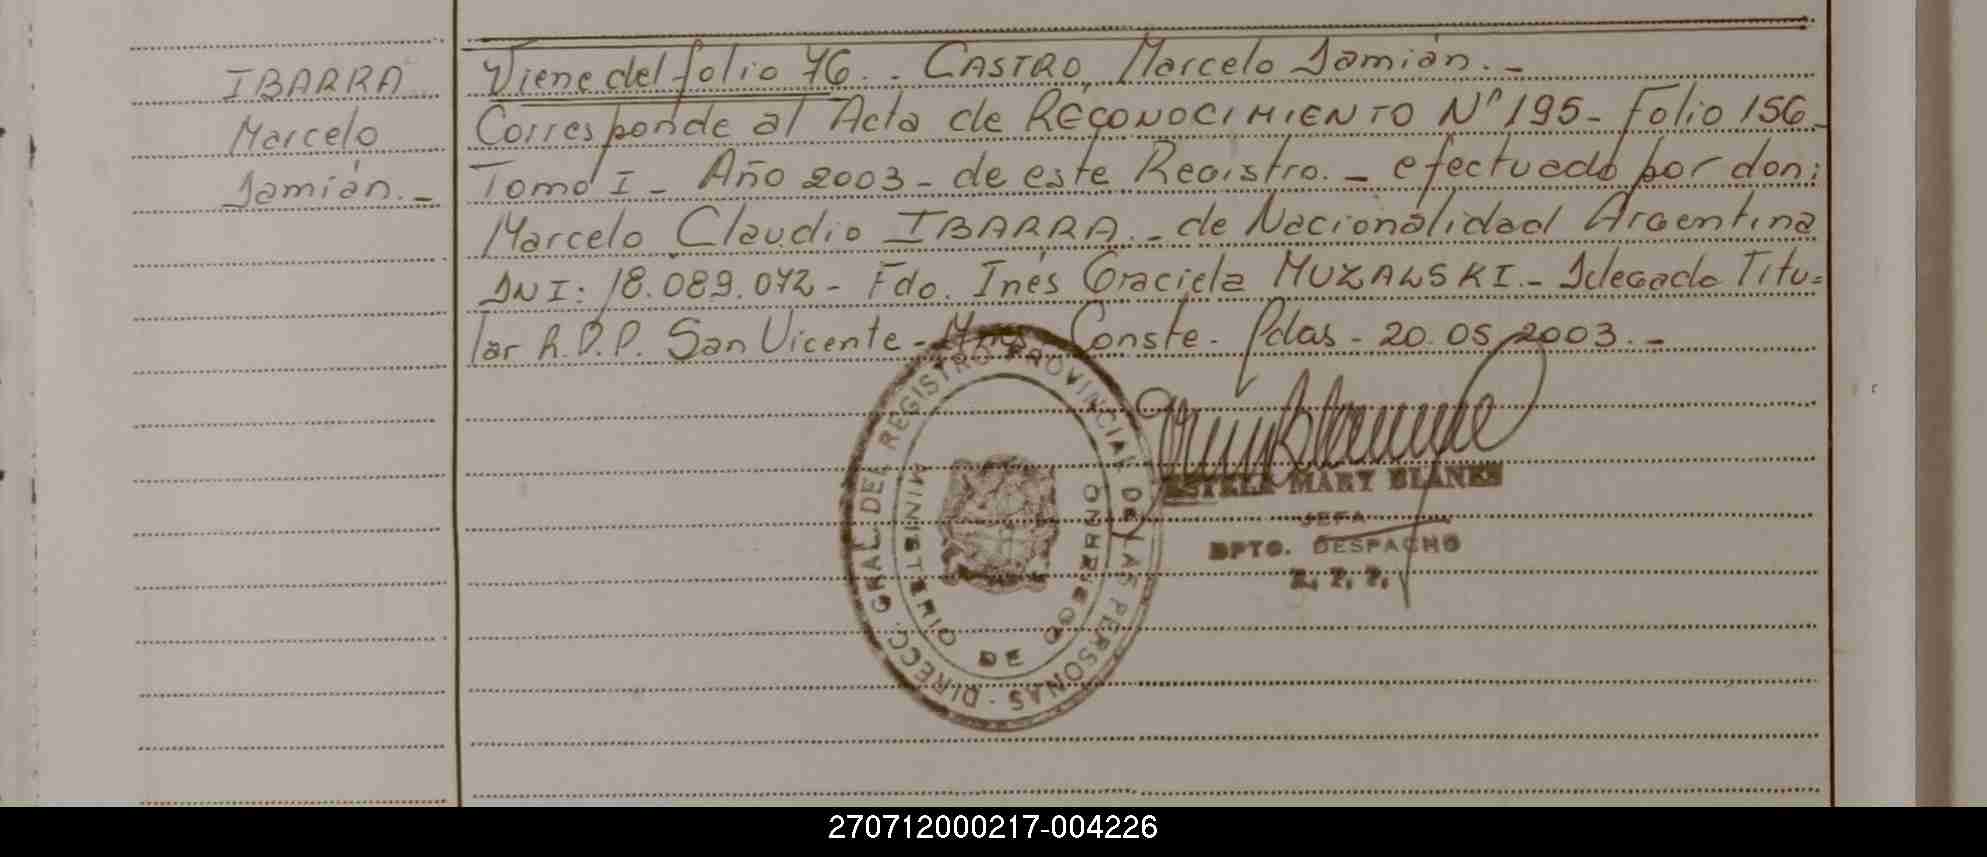 IBARRA
Marcelo
Damián.-
Viene del folio 76.. CASTRO, Marcelo Damián.-
Corresponde al Acta de RECONOCIMIENTO Nº 195- Folio 156-
Tomo I - Año 2003- de este Registro.- efectuado por don:
Marcelo Claudio IBARRA.- de Nacionalidad Argentina
DNI: 18.089.072- Fdo. Inés Graciela MUZALSKI.- Delegado Titu=
lar R.P.P. San Vicente- Mnes. Conste- Pdas- 20.05.2003.-
DIRECC. GRAL. DEL REGISTRO PROVINCIAL DE LAS PERSONAS -
MINISTERIO DE GOBIERNO
ESTELA MARY BLANES
JEFA
DPTO. DESPACHO
R. P. P.
270712000217-004226